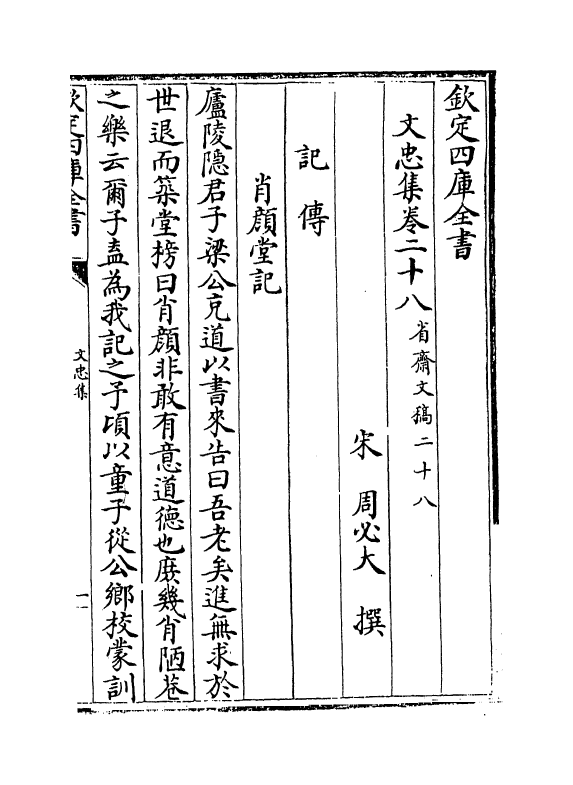 欽定四庫全書
文忠集卷二十八 省齋文稿二十八
宋 周必大 撰
記傳
肖顔堂記
廬陵隱君子梁公克道以書來告曰吾老矣進無求於
世退而築堂榜曰肖顔非敢有意道德也庶幾肖陋巷
之樂云爾子盍為我記之予頃以童子從公鄉校蒙訓
欽定四庫全書
文忠集
一